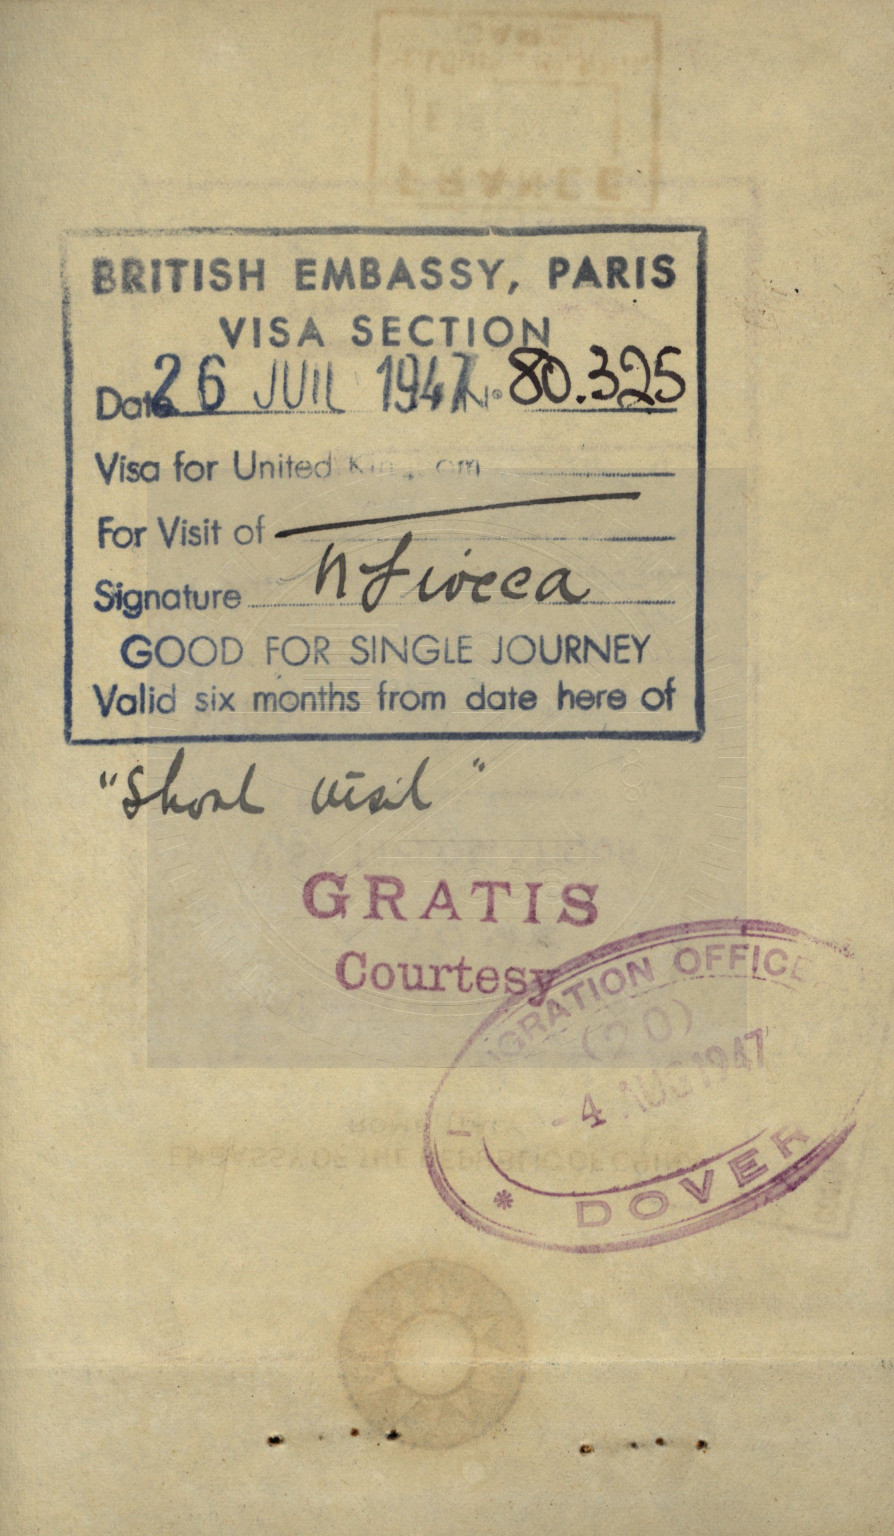 BRITISH EMBASSY, PARIS
VISA SECTION
Date 26 JUIL 1947 No 80.325
Visa for United Kingdom
For Visit of
Signature N Fiocca
GOOD FOR SINGLE JOURNEY
Valid six months from date here of
"Short visit"
GRATIS
Courtesy
IGRATION OFFICE
(20)
- 4 AUG 1947
* DOVER
FRANCE
EMBASSY OF THE REPUBLIC OF CHINA